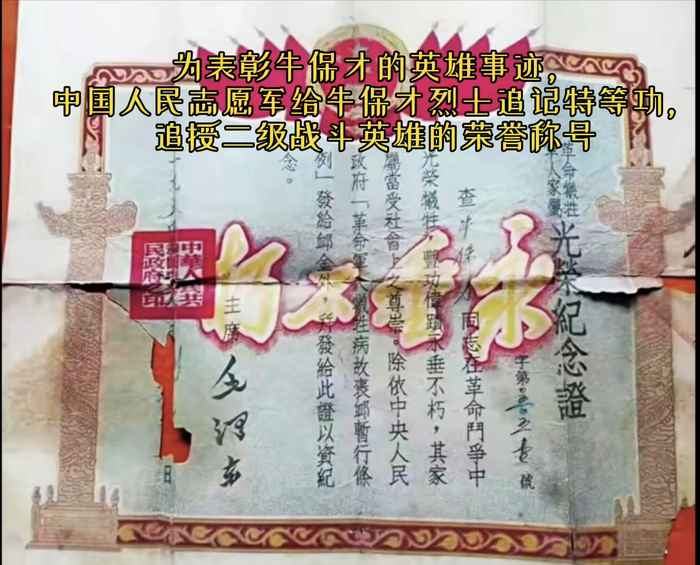 为表彰牛保才的英雄事迹，
中国人民志愿军给牛保才烈士追记特等功，
追授二级战斗英雄的荣誉称号
革命犧牲
軍人家屬
光榮紀念證
字第
號
查牛保才同志在革命鬥爭中
光榮犧牲，豐功偉蹟永垂不朽，其家
屬當受社會上之尊崇。除依中央人民
政府「革命軍人犧牲病故褒卹暫行條
例」發給卹金外，并發給此證以資紀
念。
主席
毛澤东
中華人民共
民政府之印
永垂不朽